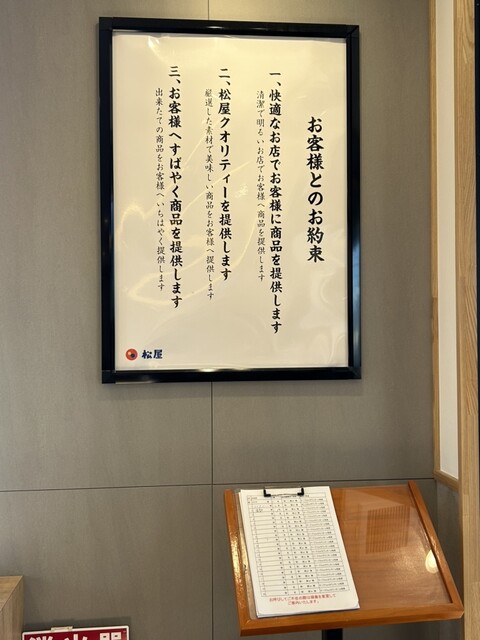 お客様とのお約束
一、快適なお店でお客様に商品を提供します
清潔で明るいお店でお客様へ商品を提供します
二、松屋クオリティーを提供します
厳選した素材で美味しい商品をお客様へ提供します
三、お客様へすばやく商品を提供します
出来たての商品をお客様へいちはやく提供します
松屋